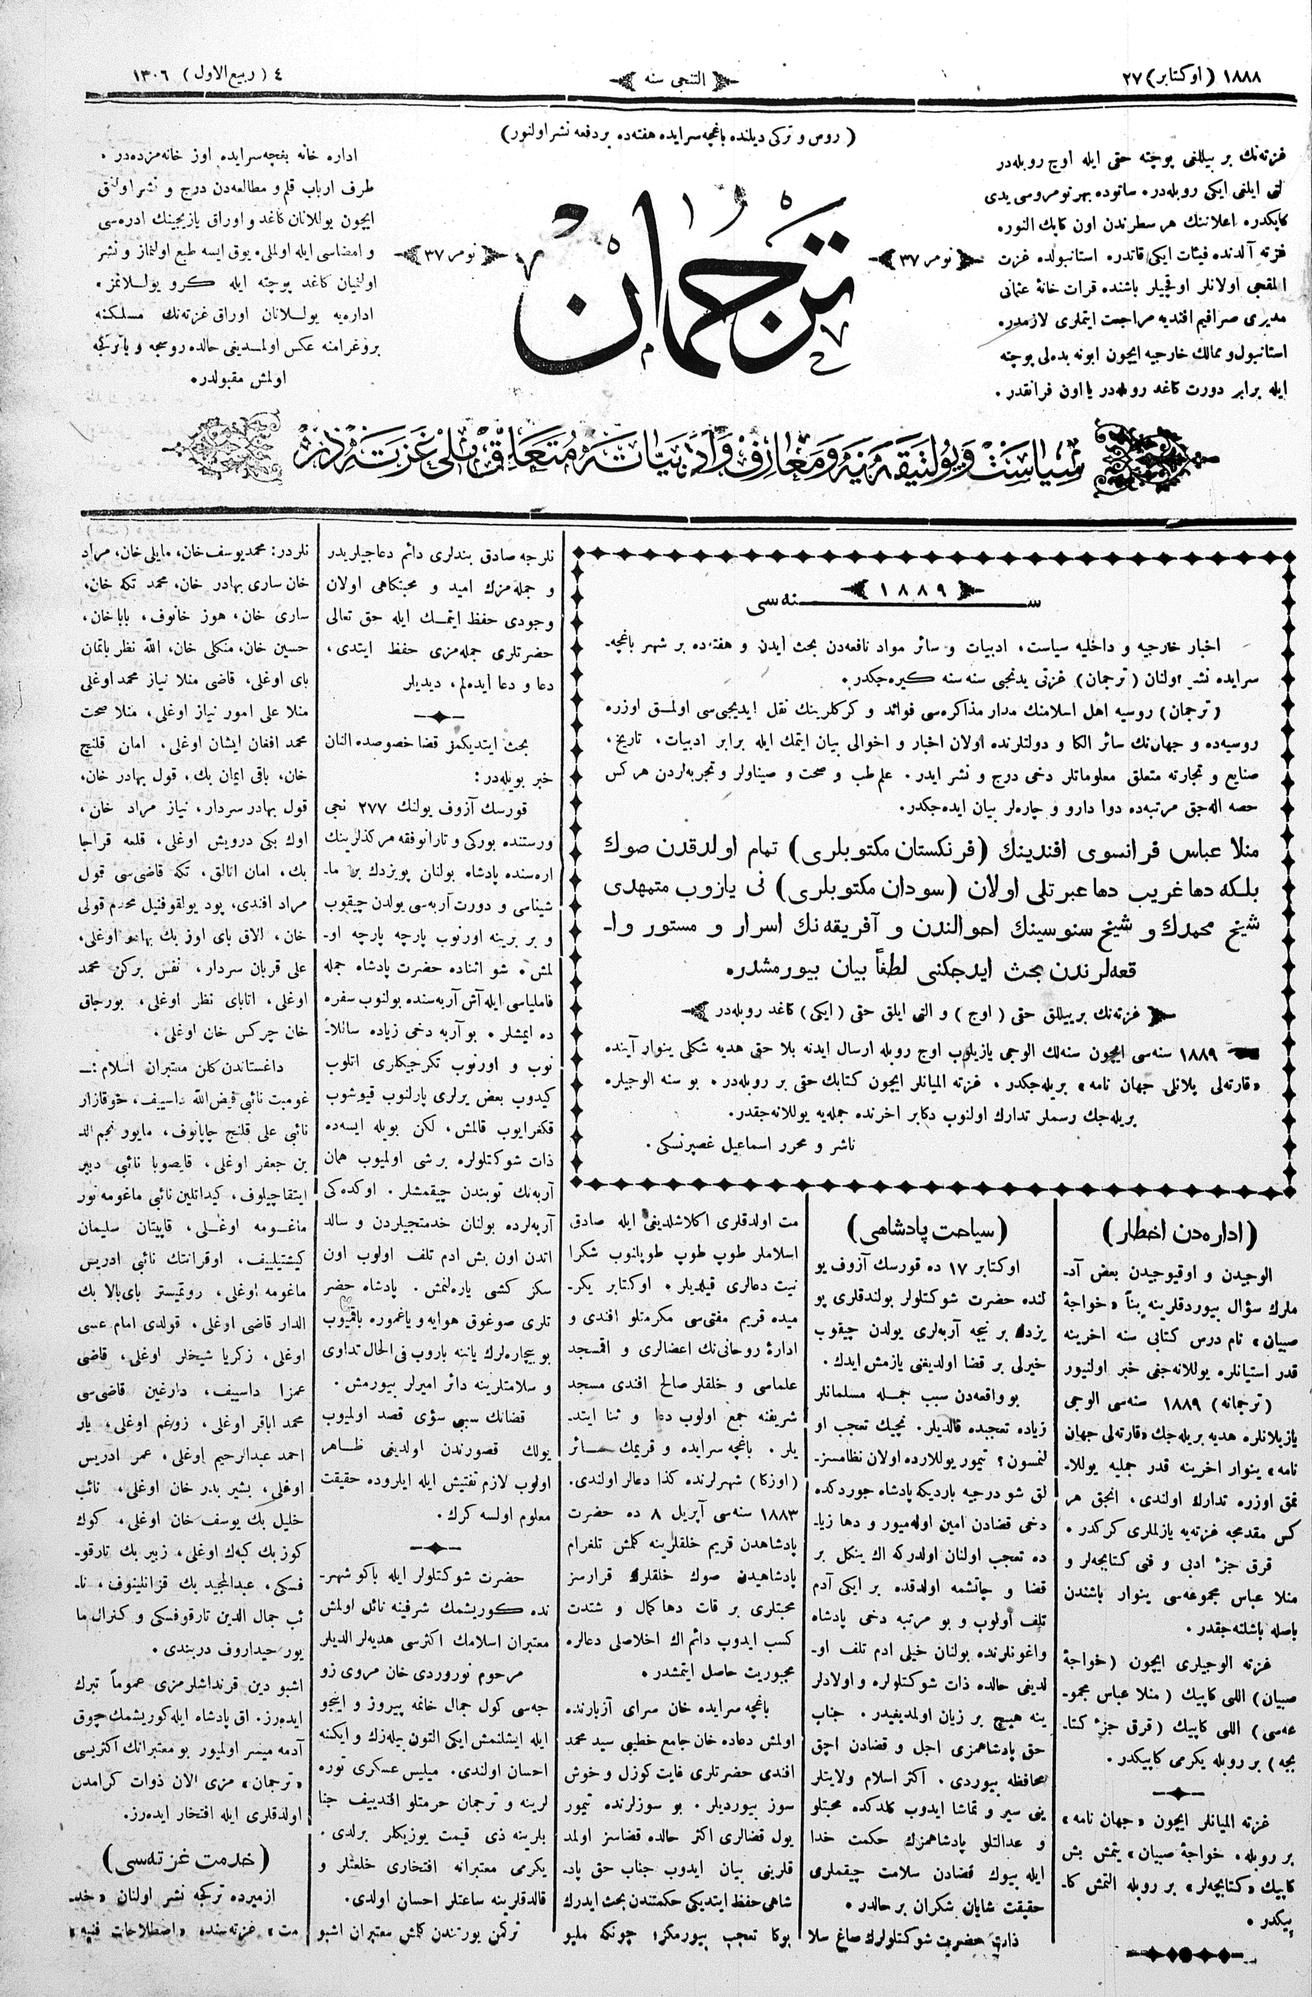 ١٨٨٨ (اوكتابر) ٢٧
التنجى سنه
٤ (ربيع الاول) ١٣٠٦
(روس و تركى ديلنده باغچه سرايده هفته ده بر دفعه نشر اولنور)
غزته‌نك بر ييللغى پوچته حقى ايله اوچ روبله‌در
لتى ايلغى ايكى روبله‌در. ساتوده بهر نومروسى يدى
كاپكدر. اعلاننك هر سطرندن اون كاپك النور.
غزته آلدنده فيئات ايكى قاتدر. استانبولده غزت
المقجى اولانلر اوقچيلر باشنده قرات خانهٔ عثمانى
مديرى صرافيم افنديه مراجعت ايتملرى لازمدر.
استانبول و ممالك خارجيه ايچون ابونه بدلى پوچته
ايله برابر دورت كاغد روبله‌در يا اون فرانقدر.
نومر ٣٧
ترجمان
نومر ٣٧
اداره خانه بغچه سرايده اوز خانه‌مزده‌در.
طرف ارباب قلم و مطالعه‌دن درج و نشر اولنق
ايچون يوللانان كاغد و اوراق يازيجينك ادره‌سى
و امضاسى ايله اولملى. يوق ايسه طبع اولنماز و نشر
اولنميان كاغد پوچته ايله كرو يوللانمز.
اداره‌يه يوللانان اوراق غزته‌نك مسلكنه
پروغرامنه عكس اولمديغى حالده روسجه و يا تركجه
اولمش مقبولدر.
سياست و پولتيقه‌يه و معارف و ادبياته متعلق ملى غزته‌در
١٨٨٩
سنه‌سى
اخبار خارجيه و داخليه سياست، ادبيات و سائر مواد نافعه‌دن بحث ايدن و هفته‌ده بر شهر باغچه-
سرايده نشر اولنان (ترجمان) غزتى يدنجى سنه سنه كيره‌جكدر.
(ترجمان) روسيه اهل اسلامنك مدار مذاكره‌سى فوائد و كركلرينك نقل ايديجى‌سى اولمق اوزره
روسيه‌ده و جهان‌نك سائر الكا و دولتلرنده اولان اخبار و احوالى بيان ايتمك ايله برابر ادبيات، تاريخ،
صنايع و تجارته متعلق معلوماتلر دخى درج و نشر ايدر. علم طب و صحت و صيناولر و تجربه‌لردن هر كس
حصه اله‌جق مرتبه‌ده دوا دارو و چاره‌لر بيان ايده‌جكدر.
منلا عباس فرانسوى افندينك (فرنكستان مكتوبلرى) تمام اولدقدن صوك
بلكه دها غريب دها عبرتلى اولان (سودان مكتوبلرى) نى يازوب متمهدى
شيخ محمدك و شيخ سنوسينك احوالندن و آفريقه‌نك اسرار و مستور وا-
قعه‌لرندن بحث ايدجكنى لطفاً بيان بيورمشدر.
غزته‌نك بر ييللق حقى (اوچ) و التى ايلق حقى (ايكى) كاغد روبله‌در
١٨٨٩ سنه‌سى ايچون سنه‌لك الوجى يازيلوب اوچ روبله ارسال ايدنه بلا حقى هديه شكلى ينوار آينده
«قارته‌لى پلانلى جهان نامه» بريله‌جكدر. غزته الميانلر ايچون كتابك حقى بر روبله‌در. بو سنه الوجيلره
بريله‌جك رسملر تدارك اولنوب دكابر اخرنده جمله‌يه يوللانه‌جقدر.
ناشر و محرر اسماعيل غصپرنسكى.
(اداره‌دن اخطار)
الوجيدن و اوقيوجيدن بعض آد-
ملرك سؤال بيوردقلرينه بناً «خواجهٔ
صبيان» نام درس كتابى سنه اخرينه
قدر استيانلره يوللانه‌جغى خبر اولنيور
(ترجمانه) ١٨٨٩ سنه‌سى الوجى
يازيلانلره هديه بريله‌جك «قارته‌لى جهان
نامه» ينوار اخرينه قدر جمليه يوللا-
نمق اوزره تدارك اولندى. انجق هر
كس مقدمجه غزته‌يه يازلملرى كركدر.
قرق جزء ادبى و فنى كتابجه‌لر و
منلا عباس مجموعه‌سى ينوار باشندن
باصله باشلنه‌جقدر.
غزته الوجيلرى ايچون (خواجهٔ
صبيان) اللى كاپيك (منلا عباس مجمو-
عه‌سى) اللى كاپيك (قرق جزء كتا-
بجه) بر روبله يكرمى كاپيكدر.
غزته الميانلر ايچون «جهان نامه»
بر روبله. خواجهٔ صبيان» يتمش بش
كاپيك «كتابجه‌لر» بر روبله التمش كا-
پيكدر.
(سياحت پادشاهى)
اوكتابر ١٧ ده قورسك آزوف يو
لنده حضرت شوكتلولر بولندقلرى پو
يزدك بر نيجه آربه‌لرى يولدن چيقوب
خيرلى بر قضا اولديغنى يازمش ايدك.
بو واقعه‌دن سبب جمله مسلمانلر
زياده تعجبده قالديلر. نچيك تعجب او
لنمسون؟ تيمور يوللارده اولان نظامسز-
لق شو درجيه بارديكه پادشاه جوردكده
دخى قضادن امين اوله‌ميور و دها زيا-
ده تعجب اولنان اولدركه اك ينكل بر
قضا و چانشمه اولدقده بر ايكى آدم
تلف اولوب و بو مرتبه دخى پادشاه
واغونلرنده بولنان خيلى ادم تلف او-
لديغى حالده ذات شوكتلولره و اولادلر
ينه هيچ بر زيان اولمديغيدر. جناب
حق پادشاهمزى اجل و قضادن اچق
محافظه بيوردى. اكثر اسلام ولايتلر
ينى سير و تماشا ايدوب كلدكده محبتلو
و عدالتلو پادشاهمزك حكمت خدا
ايله بيوك قضادن سلامت چيقملرى
حقيقت شايان شكران بر حالدر.
ذات حضرت شوكتلولرك صاغ سلا
مت اولدقلرى اكلاشلديغى ايله صادق
اسلاملر طوپ طوپ طوپلانوب شكرا
نيت دعالرى قيلديلر. اوكتابر يكر-
ميده قريم مفتى‌سى مكرمتلو افندى و
ادارهٔ روحانى‌نك اعضالرى و اقمسجد
علماسى و خلقلر صالح افندى مسجد
شريفنه جمع اولوب دعا و ثنا ايتد-
يلر. باغچه سرايده و قريمك سائر
(اوزكا) شهرلرنده كذا دعالر اولندى.
١٨٨٣ سنه‌سى آپريل ٨ ده حضرت
پادشاهدن قريم خلقلرينه كلمش تلغرام
پادشاهيدن صوك خلقلرك قرارسز
محبتلرى بر قات دها كمال و شتدت
كسب ايدوب دائم اك اخلاصلى دعالره
مجبوريت حاصل ايتمشدر.
باغچه سرايده خان سراى آزبارنده
اولمش دعاده خان جامع خطيبى سيد محمد
افندى حضرتلرى غايت كوزل و خوش
سوز بيورديلر. بو سوزلرنده تيمور
يول قضالرى اكثر حالده قضاسز اولمد
قلرينى بيان ايدوب جناب حق پاد-
شاهى حفظ ايتديكى حكمتندن بحث ايدرك
بوكا تعجب بيورمكز؛ چونكه مليو
نلرجه صادق بندلرى دائم دعاجيلريدر
و جمله‌مزك اميد و محبتكاهى اولان
وجودى حفظ ايتمك ايله حق تعالى
حضرتلرى جمله‌مزى حفظ ايتدى،
دعا و دعا ايده‌لم، ديديلر
بحث ايتديكمز قضا خصوصده النان
خبر بويله‌در:
قورسك آزوف يولنك ٢٧٧ نجى
ورستنده بوركى و تارانوفقه مركذلرينك
اره‌سنده پادشاه بولنان پويزدك بر ما-
شيناسى و دورت آربه‌سى يولدن چيقوب
و بر برينه اورنوب پارچه پارچه او-
لمش. شو اثناده حضرت پادشاه جمله
فامليا‌سى ايله آش آربه‌سنده بولنوب سفره
ده ايمشلر. بو آربه دخى زياده ساللا-
نوب و اورنوب تكرجيكلرى اتلوب
كيدوب بعض يرلرى پارلنوب قيوشوب
قكفرايوب قالمش، لكن بويله ايسه‌ده
ذات شوكتلولره بر شى اولميوب همان
آربه‌نك توبندن چيقمشلر. اوكده‌كى
آربه‌لرده بولنان خدمتجيلردن و سالد
اتدن اون بش ادم تلف اولوب اون
سكز كشى ياره‌لنمش. پادشاه حضر
تلرى صوغوق هوايه و ياغموره باقميوب
بو بيچاره‌لرك ياننه باروب فى الحال تداوى
و سلامتلرينه دائر اميرلر بيورمش.
قضانك سببى سؤى قصد اولميوب
يولك قصورندن اولديغى ظاهر
اولوب لازم تفتيش ايله ايلروده حقيقت
معلوم اولسه كرك.
حضرت شوكتلولر ايله باكو شهر-
نده كوريشمك شرفينه نائل اولمش
معتبران اسلامك اكثرسى هديه‌لر الديلر
مرحوم نوروردى خان مروى زو
جه‌سى كول جمال خانمه پيروز و اينجو
ايله ايشلنمش ايكى التون بيله‌زك و ايكنه
احسان اولندى. ميليس عسكرى توره
لرينه و ترجمان حرمتلو اقندييف جنا
بلرينه ذى قيمت يوزيكلر برلدى.
يكرمى معتبرانه افتخارى خلعتلر و
قالدقلرينه ساعتلر احسان اولدى.
تركمن يورتندن كلمش معتبران اشبو
نلردر: محمد يوسف خان، مايلى خان، مراد
خان سارى بهادر خان، محمد تكه خان،
سارى خان، هوز خانوف، بابا خان،
حسين خان، منكلى خان، الله نظر باتمان
باى اوغلى، قاضى منلا نياز محمد اوغلى
منلا على امور نياز اوغلى، منلا صحت
محمد افغان ايشان اوغلى. امان قلنچ
خان، باقى ايمان بك. قول بهادر خان،
قول بهادر سردار، نياز مراد خان،
اوك بكى درويش اوغلى، قلعه قراجا
بك. امان اتالق، تكه قاضى‌سى قول
مراد افندى، پود پولقوفنيل محرم قولى
خان، الاق باى اوز بك بهادر اوغلى،
على قربان سردار، نفس بركن محمد
اوغلى، اتاباى نظر اوغلى، بورجاق
خان چركس خان اوغلى.
داغستاندن كلن معتبران اسلام:-
غومبت نائبى فيض الله داسييف، خوقازار
نائبى على قلنچ چاپانوف، مايور نجم الد
ين جعفر اوغلى، قايصوبا نائبى دبير
اينقاچيلوف، كيداتلين نائبى ماغومه نور
ماغومه اوغلى، قاپيتان سليمان
كيشتيلييف، اوقرانتك نائبى ادريس
ماغومه اوغلى، روتميستر باى بالا بك
الدار قاضى اوغلى. قولدى امام عسى
اوغلى، زكريا شيخلر اوغلى، قاضى
عمزا داسييف، دارغين قاضى‌سى
محمد اباقر اوغلى، زوغم اوغلى، يار
احمد عبدالرحيم اوغلى، عمر ادريس
اوغلى، بشير بدر خان اوغلى، نائب
خليل بك يوسف خان اوغلى، كوك
كوز بك كبه‌ك اوغلى، زبير بك تارقو-
فسكى، عبدالمجيد بك قزانلينوف، نا-
ئب جمال الدين تارقوفسكى و كنرال ما
يور حيداروف دربندى.
اشبو دين قرنداشلرمزى عموماً تبرك
ايده‌رز. اق پادشاه ايله كوريشمك چوق
آدمه ميسر اولميور بو معتبرانك اكثريسى
«ترجمان» مزى الان ذوات كرامدن
اولدقلرى ايله افتخار ايده‌رز.
(خدمت غزته‌سى)
ازميرده تركجه نشر اولنان «خد-
مت» غزته‌سنده «اصطلاحات فنيه»